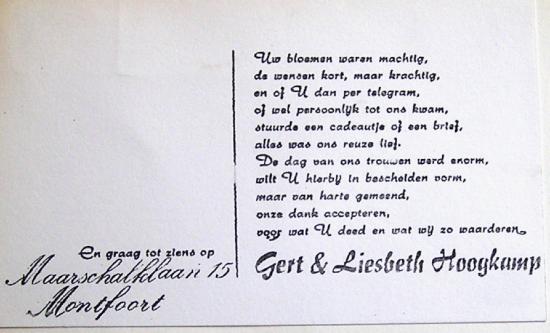 Uw bloemen waren machtig,
de wensen kort, maar krachtig,
en of U dan per telegram,
of wel persoonlijk tot ons kwam,
stuurde een cadeautje of een brief,
alles was ons reuze lief.
De dag van ons trouwen werd enorm,
wilt U hierbij in bescheiden vorm,
maar van harte gemeend,
onze dank accepteren,
voor wat U deed en wat wij zo waarderen.
Gert & Liesbeth Hoogkamp
En graag tot ziens op
Maarschalklaan 15
Montfoort